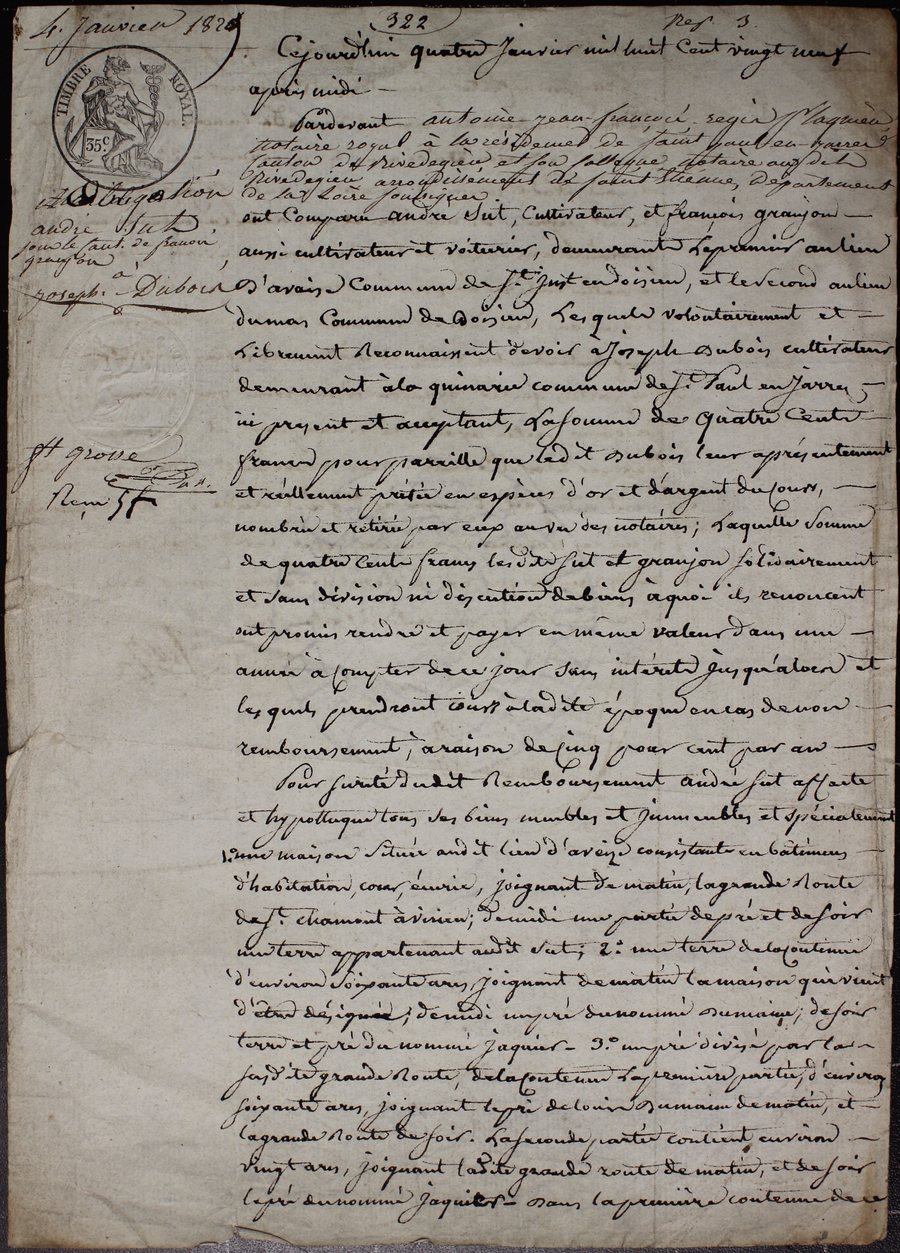 4. Janvier 1829
322
Rep 3.
TIMBRE ROYAL.
35c
Cejourd'hui quatre Janvier mil huit Cent vingt neuf
après midi —
Pardevant antoine jean françois régis
notaire royal à la résidence de saint paul en jarrez
canton de Rivedegier et son collègue notaire audit
Rivedegier arrondissement de saint Etienne, département
de la Loire soussignés
ont Comparu andré Sut, Cultivateur, et françois granjon —
aussi cultivateur et voiturier, demeurants Lepremier au lieu
D'aveise Commune de St. Just en doisieu, et le second au lieu
du mas Commune de Doisieu, Lesquels volontairement et —
Librement Reconnaissent devoir à Joseph Dubois cultivateur
demeurant à la quinarie commune de St. Paul en Jarrez,
ici présent et acceptant, La somme de quatre Cents
francs pour pareille que ledit Dubois leur a présentement
et réellement prêtée en espèces d'or et d'argent du cours,
nombrée et retirée par eux au vu des notaires; Laquelle Somme
de quatre Cents francs lesdits Sut et granjon solidairement
et sans division ni discution de biens à quoi ils renoncent
ont promis rendre et payer en même valeur dans une —
année à compter de ce jour sans intérêts jusqu'alors et
lesquels prendront cours à ladite époque en cas de non —
remboursement, à raison de Cinq pour cent par an —
Pour sureté dudit Remboursement andré Sut affecte
et hypothèque tous ses biens meubles et immeubles et spécialement
1.° une maison située audit lieu d'aveize consistante en bâtimens —
d'habitation, cour, écurie, joignant de matin, la grande Route
de St. chamont à virieu; de midi une partie de pré et de soir
une terre appartenant audit Sut; 2.° une terre de la Contenue
d'environ soixante ares, joignant de matin la maison qui vient
d'être désignée; de midi un pré du nommé Dumaine; de soir
terre et pré du nommé jaquier — 3.° un pré divisé par la —
susdite grande Route, de la Contenue La première partie, d'environ
soixante ares, joignant le pré de louis Dumaine de matin, et —
la grande Route de soir. La seconde partie contient environ —
vingt ares, joignant ladite grande route de matin, et de soir
le pré du nommé jaquier — Dans la première contenue de ce
obligation
andré Sut
françois
granjon
à
joseph Dubois
ft grosse